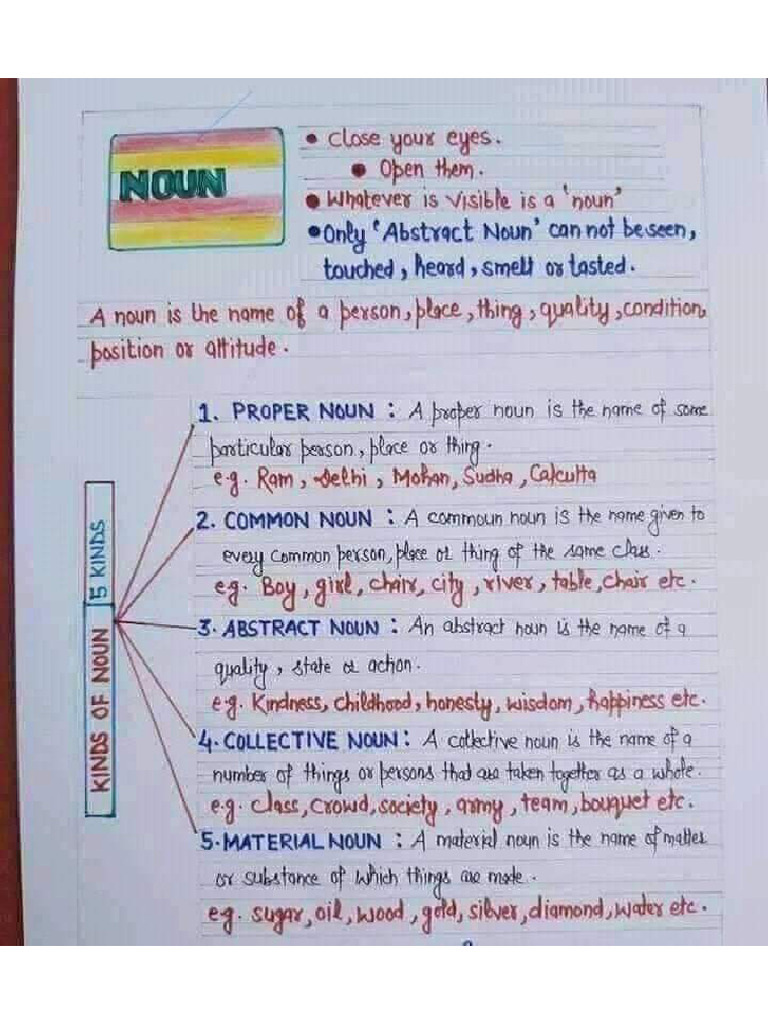 NOUN
• Close your eyes.
• Open them.
• Whatever is visible is a 'noun'
• Only 'Abstract Noun' can not be seen,
touched, heard, smelt or tasted.
A noun is the name of a person, place, thing, quality, condition,
position or attitude.
KINDS OF NOUN 5 KINDS
1. PROPER NOUN : A proper noun is the name of some
particular person, place or thing.
e.g. Ram, Delhi, Mohan, Sudha, Calcutta
2. COMMON NOUN : A commoun noun is the name given to
every common person, place or thing of the same class.
eg. Boy, girl, chair, city, river, table, chair etc.
3. ABSTRACT NOUN : An abstract noun is the name of a
quality, state or action.
eg. Kindness, childhood, honesty, wisdom, happiness etc.
4. COLLECTIVE NOUN : A collective noun is the name of a
number of things or persons that are taken together as a whole.
e.g. Class, Crowd, society, army, team, bouquet etc.
5. MATERIAL NOUN : A material noun is the name of matter
or substance of which things are made.
eg. sugar, oil, wood, gold, silver, diamond, water etc.